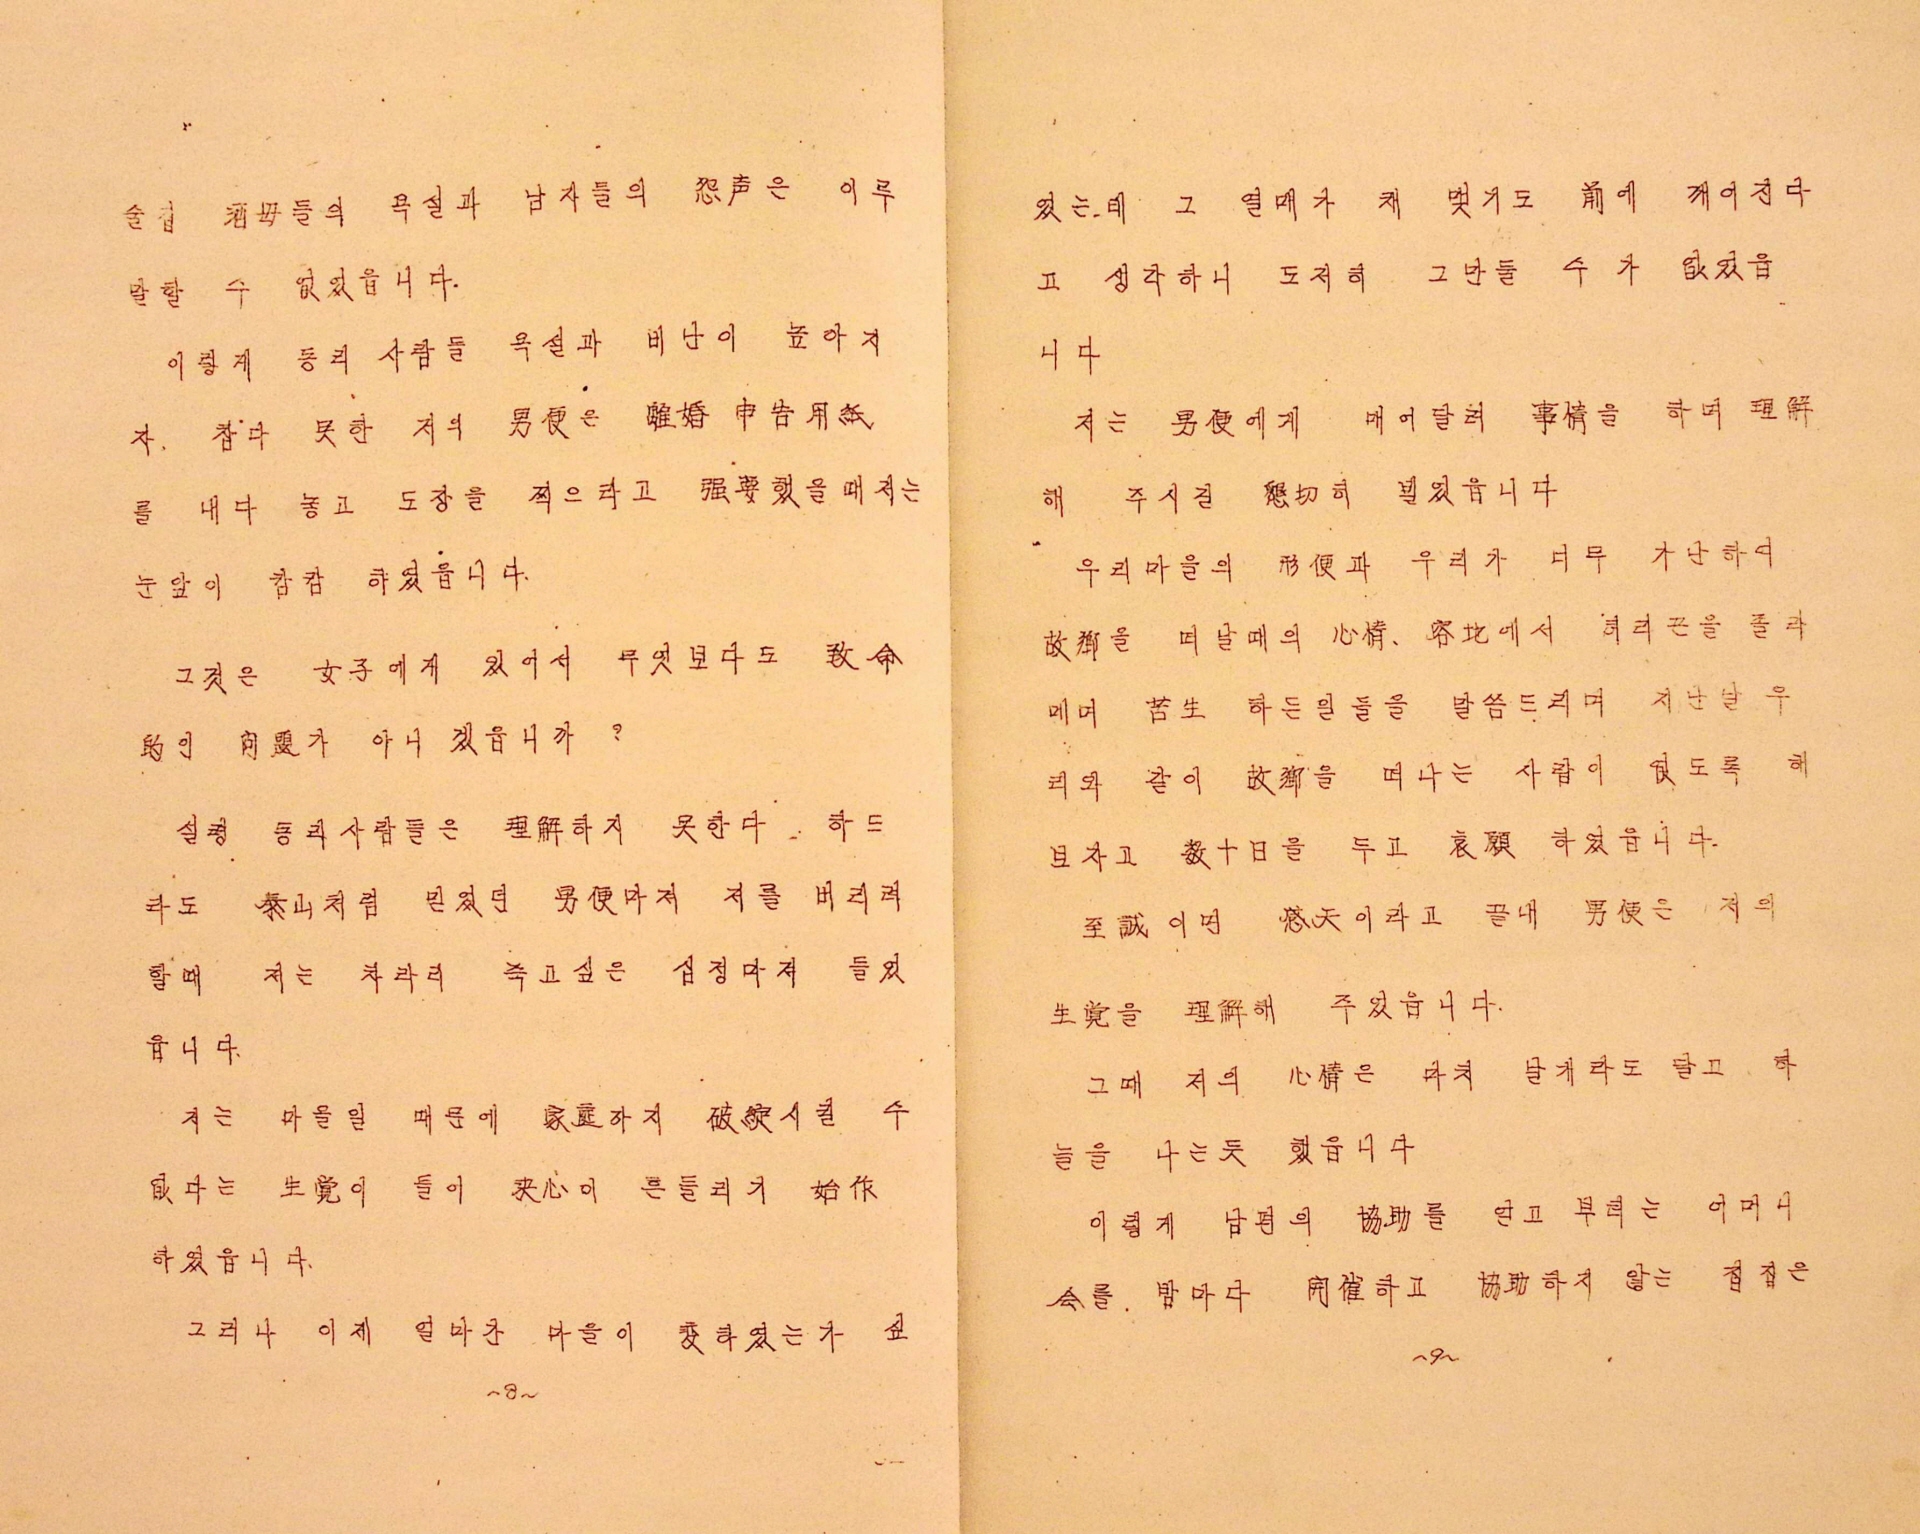 술집 酒母들의 욕설과 남자들의 怨声은 이루
말할 수 없었읍니다.
이렇게 동리 사람들 욕설과 비난이 높아지
자. 참다 못한 저의 男便은 離婚 申告用紙
를 내다 놓고 도장을 찍으라고 强要했을때저는
눈앞이 캄캄 하였읍니다.
그것은 女子에게 있어서 무엇보다도 致命
的인 問題가 아니 겠읍니까 ?
설령 동리사람들은 理解하지 못한다. 하드
라도 泰山처럼 믿었던 男便마저 저를 버리려
할때 저는 차라리 죽고싶은 심정마저 들었
읍니다.
저는 마을일 때문에 家庭까지 破綻시킬 수
없다는 生覚이 들어 决心이 흔들리기 始作
하였읍니다.
그러나 이제 얼마간 마을이 変하였는가 싶
~8~
었는데 그 열매가 채 맺기도 前에 깨어진다
고 생각하니 도저히 그만둘 수 가 없었읍
니다
저는 男便에게 매어달려 事情을 하며 理解
해 주시길 懇切히 빌었읍니다
우리마을의 形便과 우리가 너무 가난하여
故鄕을 떠날때의 心情、客地에서 허리끈을 졸라
메며 苦生 하든일들을 말씀드리며 지난날 우
리와 같이 故鄕을 떠나는 사람이 없도록 해
보자고 数十日을 두고 哀願 하였읍니다.
至誠이면 感天이라고 끝내 男便은 저의
生覚을 理解해 주었읍니다.
그때 저의 心情은 마치 날개라도 달고 하
늘을 나는듯 했읍니다
이렇게 남편의 協助를 얻고 부터는 어머니
会를. 밤마다 開催하고 協助하지 않는 집집은
~9~